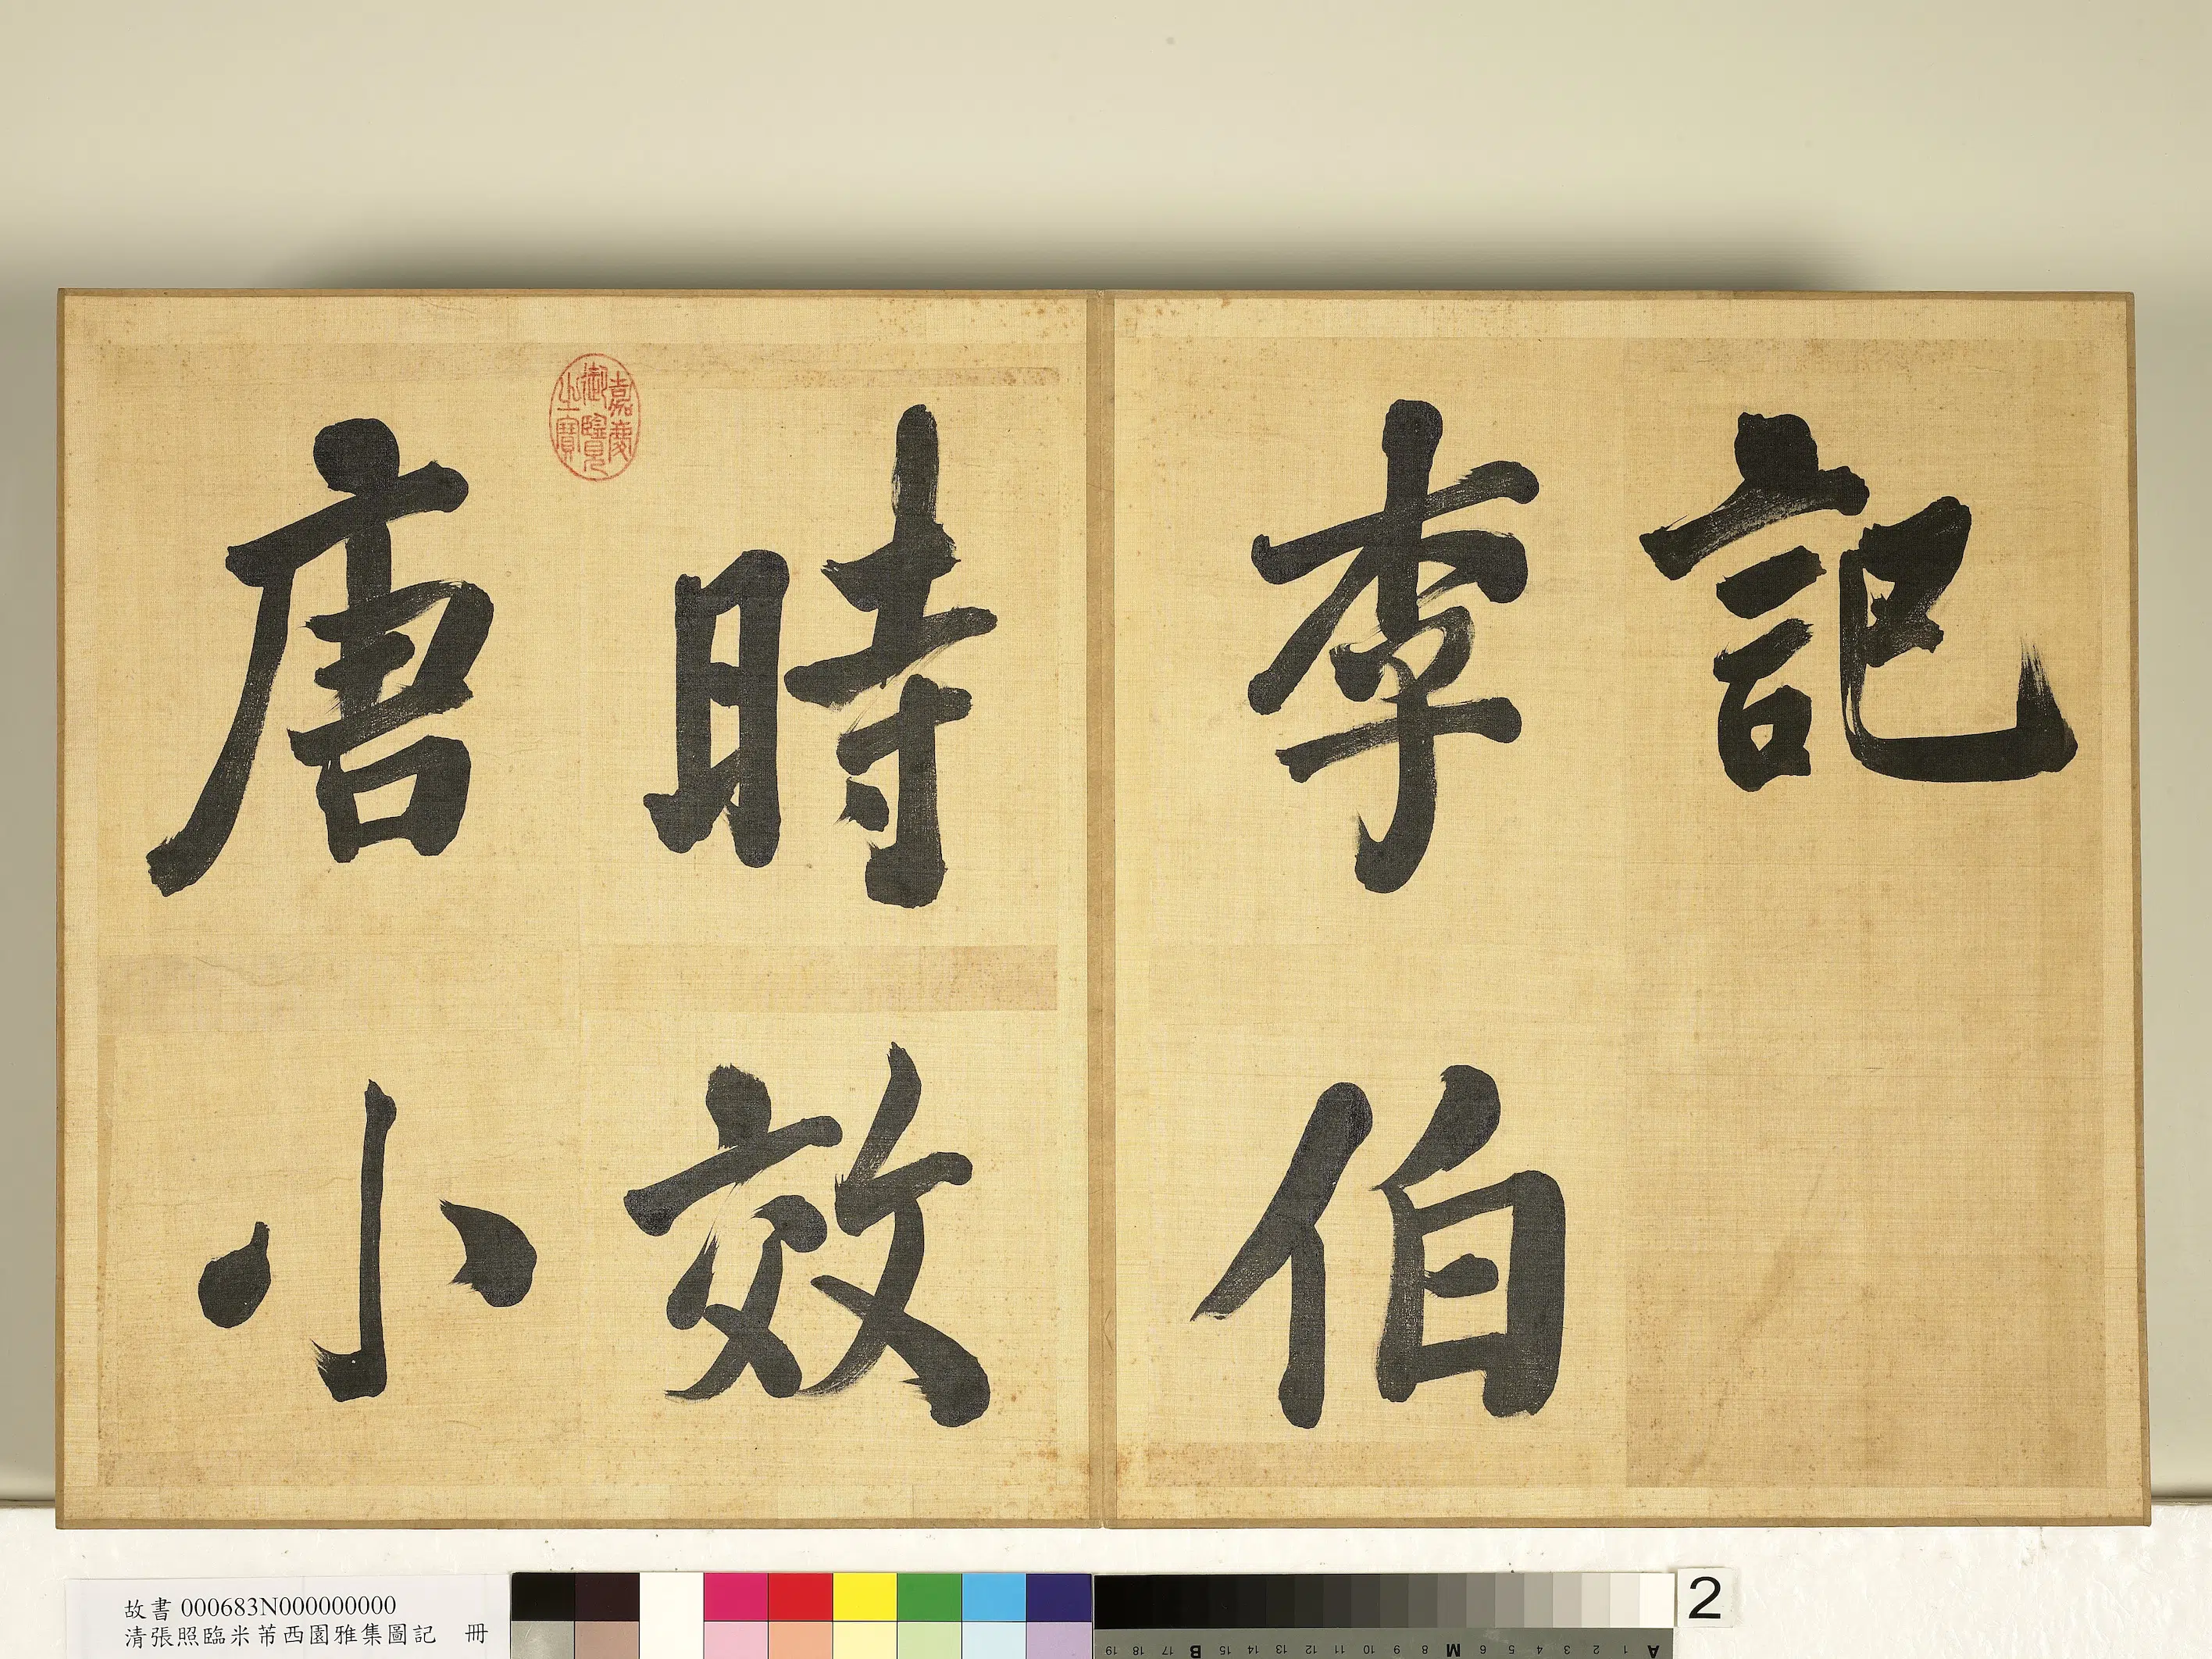 記
李伯
時效
唐小
嘉慶
御覽
之寶
故書 000683N000000000
清張照臨米芾西園雅集圖記 冊
2
A 1 2 3 4 5 6 7 8 M 9 10 11 12 13 14 15 B 17 18 19